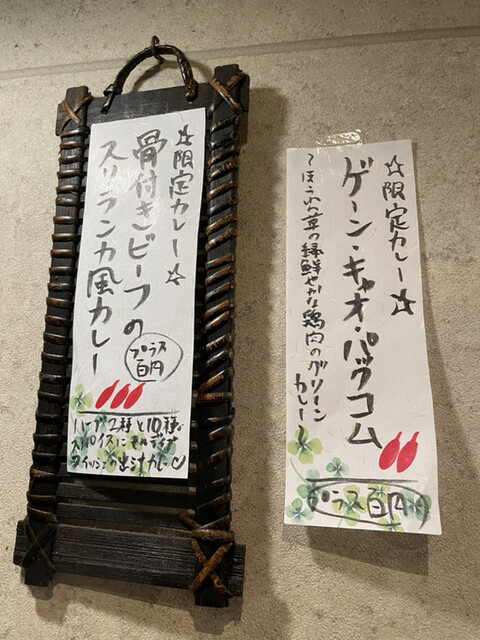 ☆限定カレー☆
骨付きビーフの
スリランカ風カレー
プラス
百円
ハーブ2種と10種の
スパイスにモルディブ
☆限定カレー☆
ゲーン・キャオ・パックコム
～ほうれん草の緑鮮やかな鶏肉のグリーン
カレー～
プラス百円